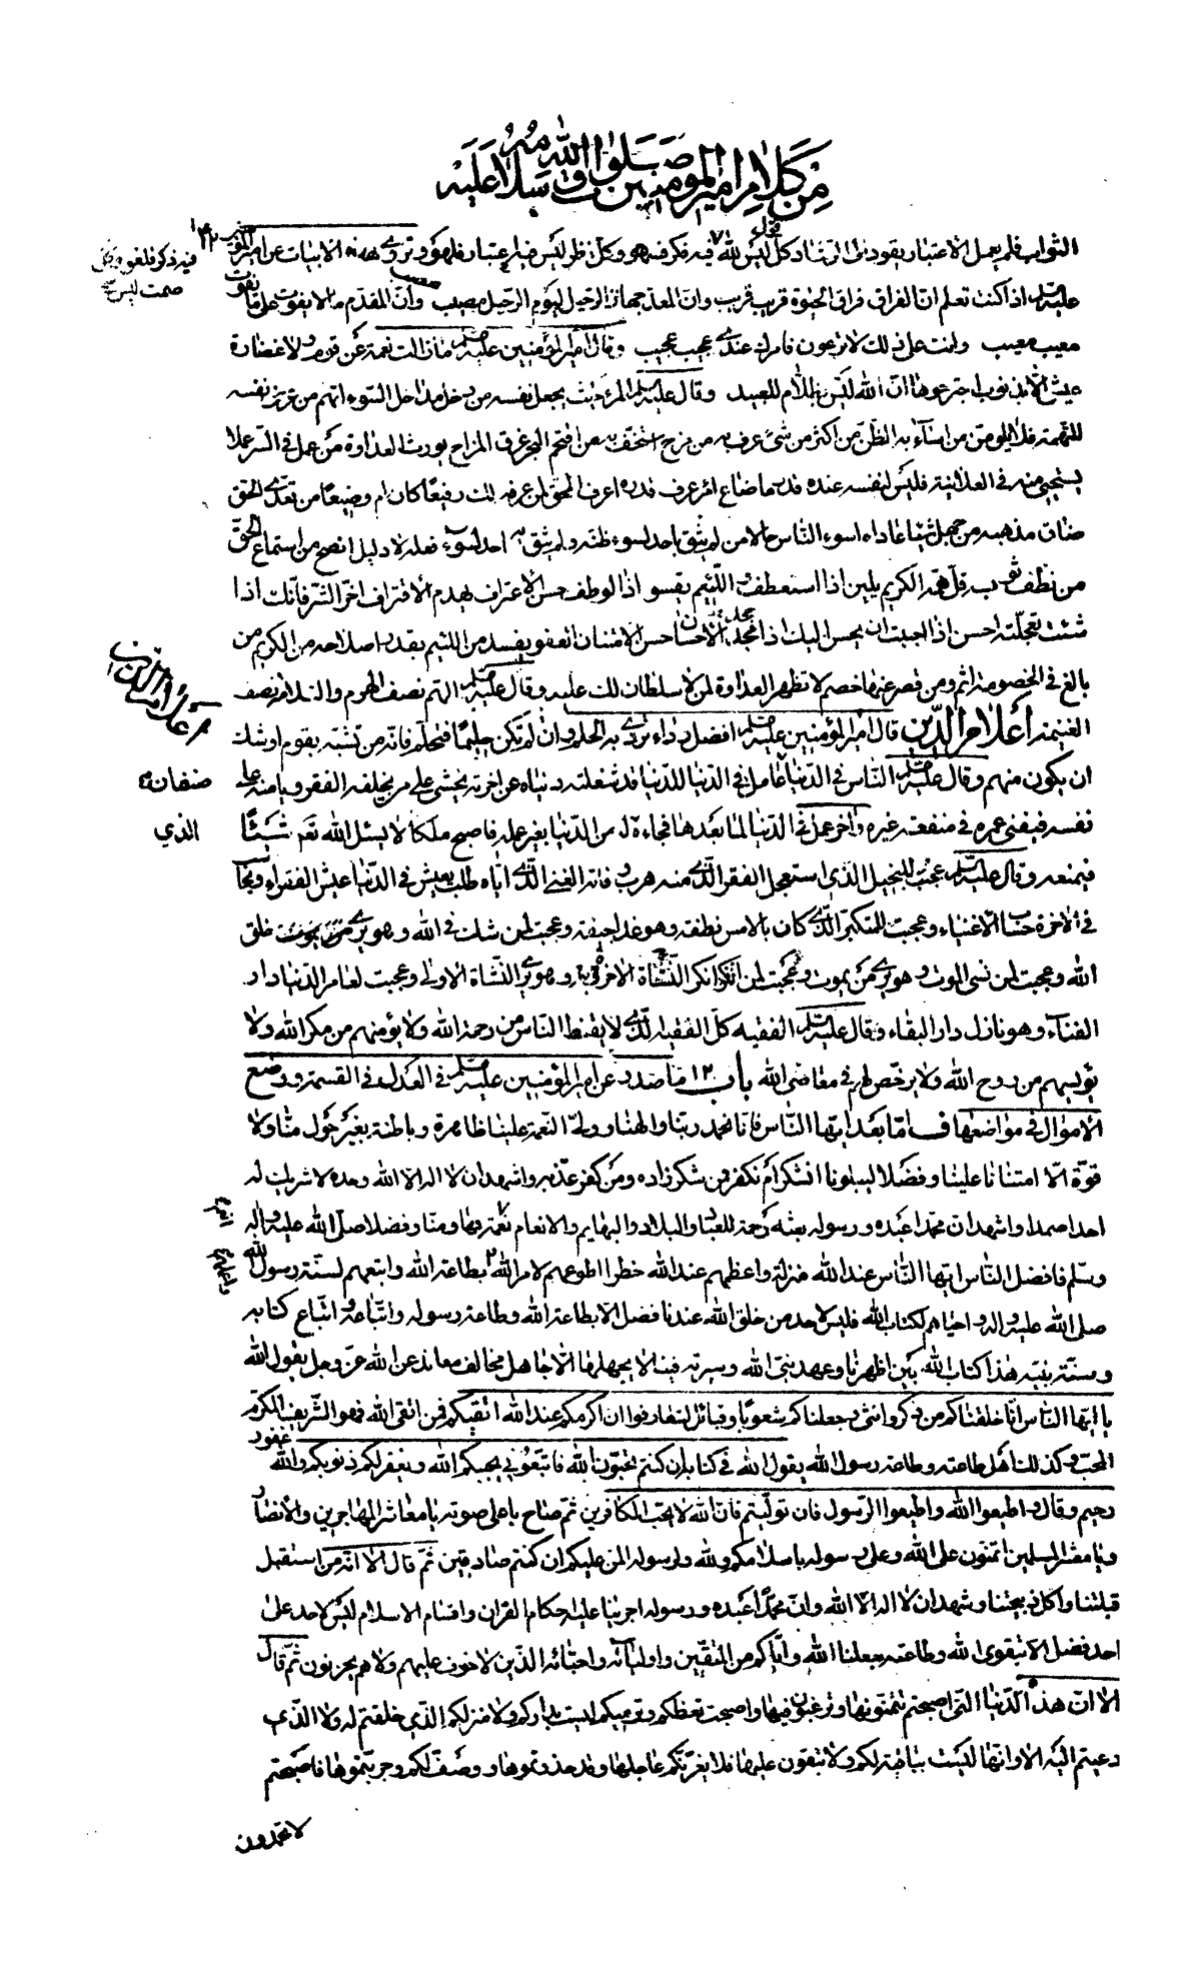 من كلام امير المؤمنين صلوات الله وسلامه عليه
الثواب فلم يعمل الاعتبار يقود الى الرشاد كل قول ليس لله فيه ذكر فهو وكل نظر ليس فيه اعتبار فلهو وتروى هذه الابيات عن امير المؤمنين
عليه السلام اذا كنت تعلم ان الفراق فراق الحيوة قريب قريب وان المعد جهاز الرحيل ليوم الرحيل مصيب وان المقدم ما لا يفوت على ما يفوت
معيب معيب وانت على ذلك لا ترعوى فامرك عندى عجيب عجيب وقال امير المؤمنين عليه السلام ما زالت نعمة عن قوم ولا غضارة
عيش الا بذنوب اجترحوها ان الله ليس بظلام للعبيد وقال عليه السلام المرء حيث يجعل نفسه من دخل مداخل السوء اتهم من عرض نفسه
للتهمة فلا يلومن من اساء به الظن من اكثر من شئ عرف به من مزح استخف به من اقتحم البحر غرق المزاح يورث العداوة من عمل فى السر عملا
يستحيى منه فى العلانية فليس لنفسه عنده قدر ما ضاع امرء عرف قدره اعرف الحق لمن عرفه لك رفيعا كان ام وضيعا من تعدى الحق
ضاق مذهبه من جهل شيئا عاداه اسوء الناس حالا من لم يثق باحد لسوء ظنه ولم يثق به احد لسوء فعله لا دليل انصح من استماع الحق
من نظف ثوبه قل همه الكريم يلين اذا استعطف واللئيم يقسو اذا لوطف حسن الاعتراف يهدم الاقتراف اخر الشر فانك اذا
شئت تعجلته احسن اذا احببت ان يحسن اليك اذا جحد الاحسان حسن الامتنان العفو يفسد من اللئيم بقدر اصلاحه من الكريم من
بالغ فى الخصومة اثم ومن قصر عنها خصم لا تظهر العداوة لمن لا سلطان لك عليه وقال عليه السلام الهم نصف الهرم والسلامة نصف
الغنيمة اعلام الدين قال امير المؤمنين عليه السلام افضل رداء تردى به الحلم وان لم تكن حليما فتحلم فانه من تشبه بقوم اوشك
ان يكون منهم وقال عليه السلام الناس فى الدنيا عامل فى الدنيا للدنيا قد شغلته دنياه عن اخرته يخشى على من يخلفه الفقر ويامنه على
نفسه فيفنى عمره فى منفعة غيره واخر عمل فى الدنيا لما بعدها فجاءه له من الدنيا بغير عمله فاصبح ملكا لا يسئل الله تعم شيئا
فيمنعه وقال عليه السلام عجبت للبخيل الذى استعجل الفقر الذى منه هرب وفاته الغنى الذى اياه طلب يعيش فى الدنيا عيش الفقراء ويحاسب
فى الاخرة حساب الاغنياء وعجبت للمتكبر الذى كان بالامس نطفة وهو غدا جيفة وعجبت لمن شك فى الله وهو يرى خلق
الله وعجبت لمن نسى الموت وهو يرى من يموت وعجبت لمن انكر النشاة الاخرى وهو يرى النشاة الاولى وعجبت لعامر الدنيا دار
الفناء وهو نازل دار البقاء وقال عليه السلام الفقيه كل الفقيه الذى لا يقنط الناس من رحمة الله ولا يؤمنهم من مكر الله ولا
يؤيسهم من روح الله ولا يرخص لهم فى معاصى الله باب ١٢ ما صدر عن امير المؤمنين عليه السلام فى العدل فى القسمة ووضع
الاموال فى مواضعها ف اما بعد ايها الناس فانا نحمد ربنا والهنا وولى النعمة علينا ظاهرة وباطنة بغير حول منا ولا
قوة الا امتنانا علينا وفضلا ليبلونا انشكر ام نكفر فمن شكر زاده ومن كفر عذبه واشهد ان لا اله الا الله وحده لا شريك له
احدا صمدا واشهد ان محمدا عبده ورسوله بعثه رحمة للعباد والبلاد والبهايم والانعام نعمة انعم بها ومنا وفضلا صلى الله عليه واله
وسلم فافضل الناس ايها الناس عند الله منزلة واعظمهم عند الله خطرا اطوعهم لامر الله بطاعة الله واتبعهم لسنة رسول الله
صلى الله عليه واله واحياهم لكتاب الله فليس لاحد من خلق الله عندنا فضل الا بطاعة الله وطاعة رسوله واتباع كتابه
وسنة نبيه هذا كتاب الله بين اظهرنا وعهد نبى الله وسيرته فينا لا يجهلها الا جاهل مخالف معاند عن الله عز وجل يقول الله
يا ايها الناس انا خلقناكم من ذكر وانثى وجعلناكم شعوبا وقبائل لتعارفوا ان اكرمكم عند الله اتقيكم فمن اتقى الله فهو الشريف المكرم
المحب وكذلك اهل طاعته وطاعة رسول الله يقول الله فى كتابه ان كنتم تحبون الله فاتبعونى يحببكم الله ويغفر لكم ذنوبكم والله غفور
رحيم وقال واطيعوا الله واطيعوا الرسول فان توليتم فان الله لا يحب الكافرين ثم صاح باعلى صوته يا معاشر المهاجرين والانصار
ويا معشر المسلمين اتمنون على الله وعلى رسوله باسلامكم ولله ولرسوله المن عليكم ان كنتم صادقين ثم قال الا انه من استقبل
قبلتنا واكل ذبيحتنا وشهد ان لا اله الا الله وان محمدا عبده ورسوله اجرينا عليه احكام القران واقسام الاسلام ليس لاحد على
احد فضل الا بتقوى الله وطاعته جعلنا الله واياكم من المتقين واوليائه واحبائه الذين لا خوف عليهم ولا هم يحزنون ثم قال
الا ان هذه الدنيا التى اصبحتم تتمنونها وترغبون فيها واصبحت تعظكم وترميكم ليست بداركم ولا منزلكم الذى خلقتم له ولا الذى
دعيتم اليه الا وانها ليست بباقية لكم ولا تبقون عليها فلا يغرنكم عاجلها وقد حذرتموها ووصفت لكم وجربتموها فاصبحتم
لا تحمدون
فيه ذكر فلغو وكل
صمت ليس
اعلام الدين
صنفان
الذي